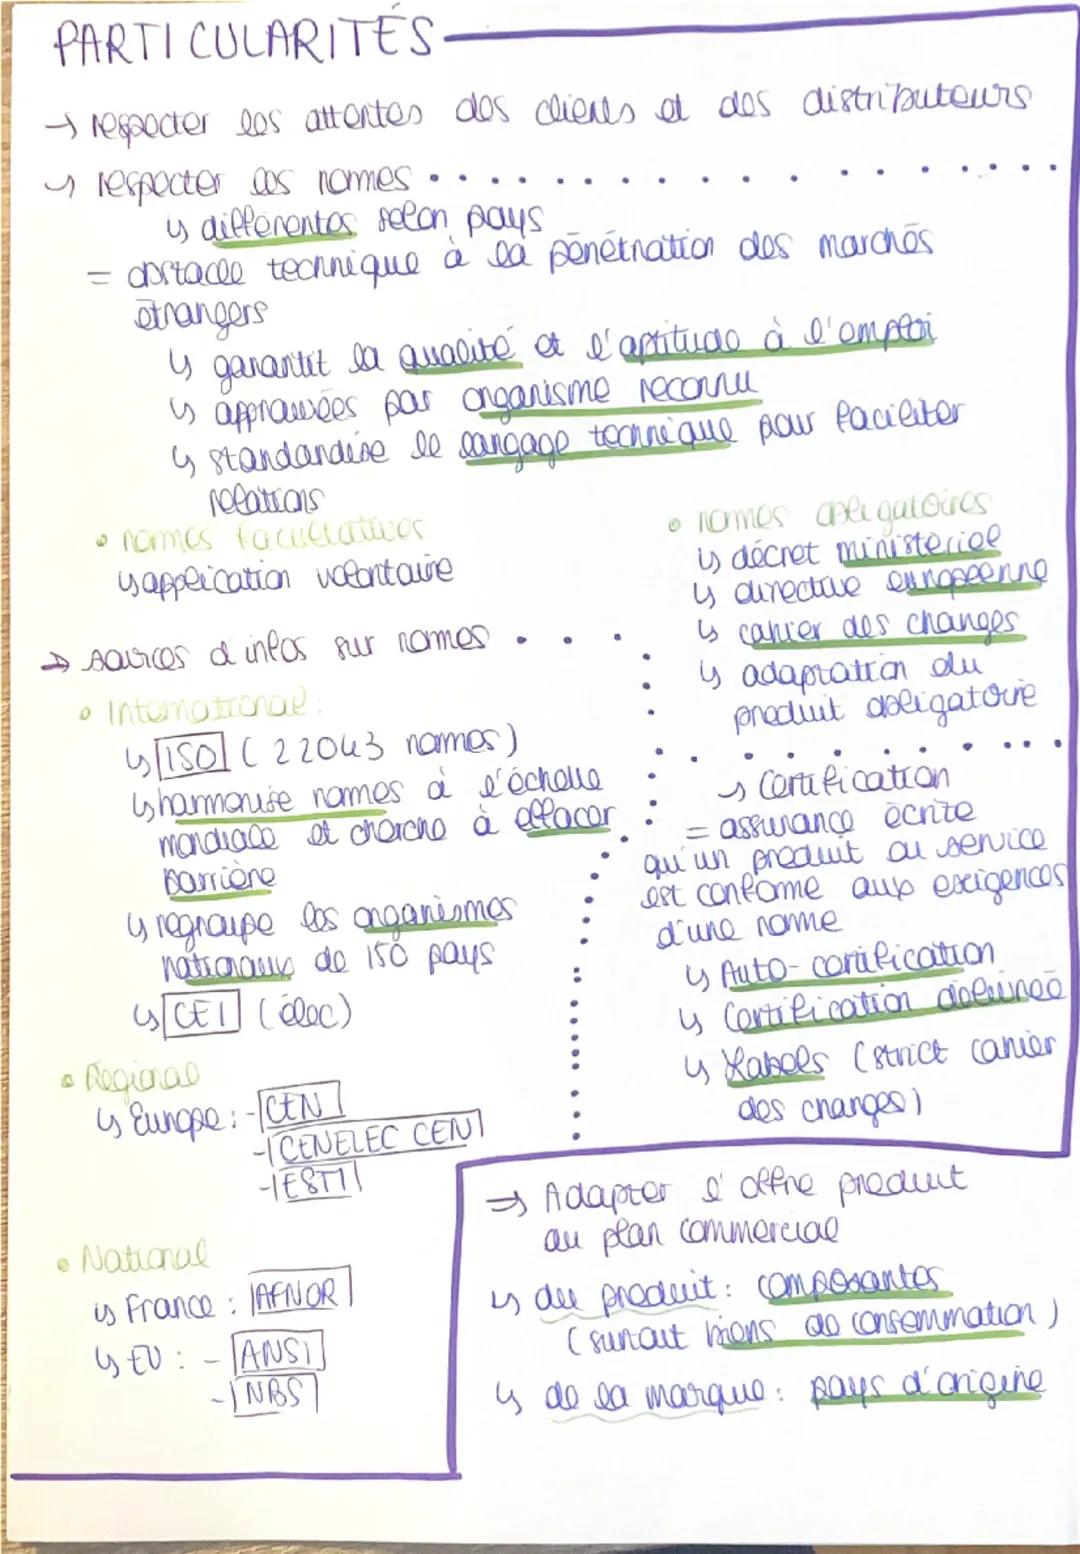 PARTICULARITÉS
→ respecter les attentes des clients et des distributeurs
↳ respecter les normes
↳ différentes selon pays
= obstacle technique à la pénétration des marchés
étrangers
↳ garantit la qualité et l'aptitude à l'emploi
↳ approuvées par organisme reconnu
↳ standardise le langage technique pour faciliter
relations
• normes facultatives
↳ application volontaire
• normes obligatoires
↳ décret ministeriel
↳ directive européenne
↳ cahier des charges
↳ adaptation du
produit obligatoire
→ sources d'infos sur normes
• International :
↳ ISO (22043 normes)
↳ harmonise normes à l'échelle
mondiale et cherche à effacer
barrière
↳ regroupe les organismes
nationaux de 150 pays
↳ CEI (élec)
• Régional
↳ Europe : - CEN
- CENELEC CEN
- ESTI
• National
↳ France : AFNOR
↳ EU : - ANSI
- NBS
↳ Certification
= assurance écrite
qu'un produit ou service
est conforme aux exigences
d'une norme
↳ Auto-certification
↳ Certification délivrée
↳ Labels (strict cahier
des charges)
→ Adapter l'offre produit
au plan commercial
↳ du produit : composantes
(surtout biens de consommation)
↳ de la marque : pays d'origine